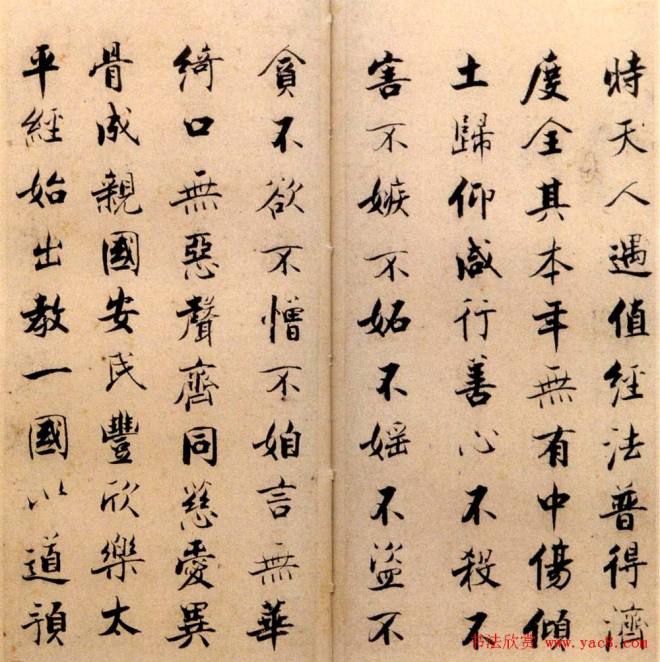 時天人遇值經法普得濟
度全其本年無有中傷傾
土歸仰咸行善心不殺不
害不嫉不妬不婬不盜不
貪不欲不憎不言無華
綺口無惡聲齊同慈愛異
骨成親國安民豐欣樂太
平經始出教一國以道預
书法欣赏 www.yac8.com